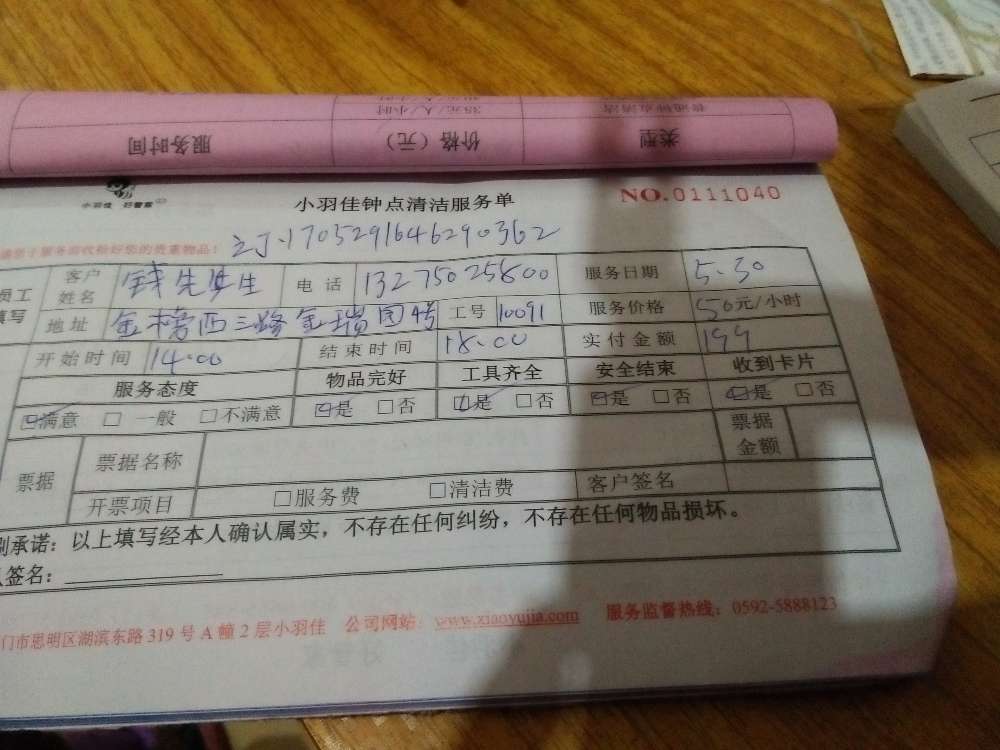 服务时间 价格（元） 类型
小羽佳 好管家
小羽佳钟点清洁服务单 NO.0111040
服务前收拾好您的贵重物品！ 1705291646290362
客户姓名 钱先生 电话 13275025800 服务日期 5.30
地址 金榜西三路金瑞园4号 工号 10091 服务价格 50元/小时
开始时间 14.00 结束时间 18.00 实付金额 199
服务态度 物品完好 工具齐全 安全结束 收到卡片
☑满意 □一般 □不满意 ☑是 □否 ☑是 □否 ☑是 □否 ☑是 □否
票据 票据名称 票据金额
开票项目 □服务费 □清洁费 客户签名
承诺：以上填写经本人确认属实，不存在任何纠纷，不存在任何物品损坏。
签名：
门市思明区湖滨东路319号A幢2层小羽佳 公司网站：www.xiaoyujia.com 服务监督热线：0592-5888123